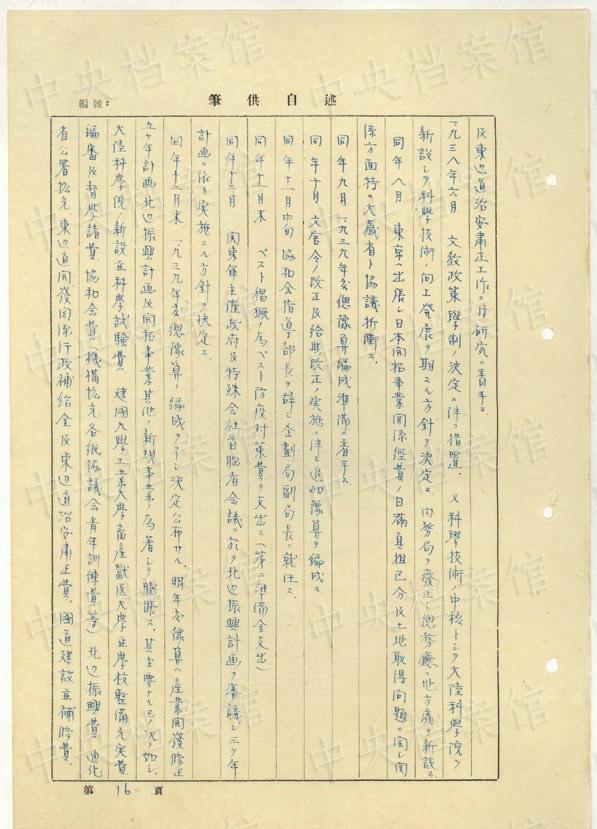 編號:
筆供自述
及東辺道治安粛正工作ニ付研究ニ着手ス
一九三八年六月 文教政策學制ノ決定ニ伴フ措置、又科學技術ノ中核トシテ大陸科學院ヲ
新設シテ科學技術ノ向上発展ヲ期スル方針ヲ決定ス 内務局ヲ廃止シ總務廳ニ地方處ヲ新設ス
同年八月 東京ヘ出張シ日本開拓事業関係経費ノ日滿負担区分及土地取得問題ニ関シ関
係方面特ニ大藏省ト協議折衝ス
同年九月 一九三九年度總豫算編成準備ニ着手ス
同年十月 文官令ノ改正及給與改正ノ実施ニ伴ヒ追加豫算ヲ編成ス
同年十一月中旬 協和会指導部長ヲ辞シ企劃局副局長ニ就任ス
同年十一月末 ペスト猖獗ノ為ペスト防疫対策費ヲ支出ス(第二準備金支出)
同年十二月 関東軍主催政府及特殊会社首腦者会議ニ於テ北辺振興計画ヲ審議シ三ヶ年
計画ニ依リ実施スル方針ヲ決定ス
同年十二月末 一九三九年度總豫算ノ編成ヲ了シ決定公布サル、明年度豫算ハ産業開發修正
五ヶ年計画、北辺振興計画及開拓事業其他ノ新規事業ノ為著シク膨脹ス 其主要ナモノ次ノ如シ、
大陸科學院ノ新設並科學試驗費 建國大學工業大學畜産獸医大學並學校整備充実費
編審及督學諸費、協和会費(機構拡充各級協議会青年訓練費等) 北辺振興費、適化
省公署拡充、東辺道開發関係行政補給金及東辺道治安粛正費、國道建設並補修費、
第 16 頁
中央档案馆